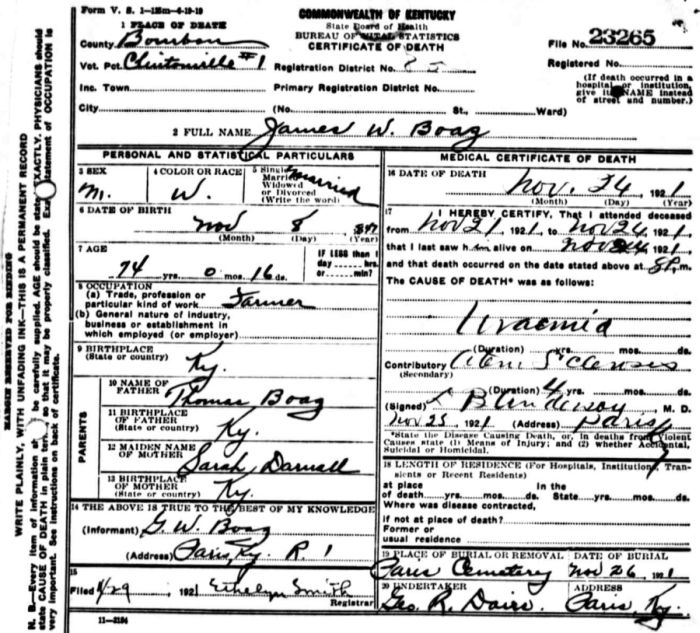 Form V. S. 1-125m-4-19-19
COMMONWEALTH OF KENTUCKY
State Board of Health
BUREAU OF VITAL STATISTICS
CERTIFICATE OF DEATH
1 PLACE OF DEATH
County Bourbon
Vot. Pct. Clintonville #1
Inc. Town
City
Registration District No. 85
Primary Registration District No.
(No. St., Ward)
File No. 23265
Registered No.
(If death occurred in a hospital or institution, give its NAME instead of street and number.)
2 FULL NAME James W. Boag
PERSONAL AND STATISTICAL PARTICULARS
3 SEX
M.
4 COLOR OR RACE
W.
5 Single
Married
Widowed
or Divorced
(Write the word)
Married
6 DATE OF BIRTH
Nov 8 1847
(Month) (Day) (Year)
7 AGE
74 yrs. 0 mos. 16 ds.
IF LESS than 1
day hrs.
or min?
8 OCCUPATION
(a) Trade, profession or
particular kind of work Farmer
(b) General nature of industry,
business or establishment in
which employed (or employer)
9 BIRTHPLACE
(State or country) Ky.
PARENTS
10 NAME OF
FATHER Thomas Boag
11 BIRTHPLACE
OF FATHER
(State or country) Ky.
12 MAIDEN NAME
OF MOTHER Sarah Darnall
13 BIRTHPLACE
OF MOTHER
(State or country) Ky.
14 THE ABOVE IS TRUE TO THE BEST OF MY KNOWLEDGE
(Informant) G. W. Boag
(Address) Paris, Ky. R 1
15
Filed 11/29, 1921 Ethelyn Smith
Registrar
11-3184
MEDICAL CERTIFICATE OF DEATH
16 DATE OF DEATH
Nov. 24 1921
(Month) (Day) (Year)
17 I HEREBY CERTIFY, That I attended deceased
from Nov 21 1921 to Nov 24, 1921
that I last saw him alive on Nov 24 1921
and that death occurred on the date stated above at 8 P. m.
The CAUSE OF DEATH* was as follows:
Uraemia
(Duration) yrs. mos. ds.
Contributory
(Secondary)
(Duration) 4 yrs. mos. ds.
(Signed) M. D.
Nov 25, 1921 (Address) Paris Ky
*State the Disease Causing Death, or, in deaths from Violent
Causes state (1) Means of Injury; and (2) whether Accidental,
Suicidal or Homicidal.
18 LENGTH OF RESIDENCE (For Hospitals, Institutions, Tran-
sients or Recent Residents)
at place In the
of death yrs. mos. ds. State yrs. mos. ds.
Where was disease contracted,
if not at place of death?
Former or
usual residence
19 PLACE OF BURIAL OR REMOVAL DATE OF BURIAL
Paris Cemetery Nov 26, 1921
20 UNDERTAKER ADDRESS
Geo. R. Davis Paris, Ky.
MARGIN RESERVED FOR BINDING
WRITE PLAINLY, WITH UNFADING INK—THIS IS A PERMANENT RECORD
N. B.—Every item of information should be carefully supplied. AGE should be stated EXACTLY. PHYSICIANS should
state CAUSE OF DEATH in plain terms, so that it may be properly classified. Exact statement of OCCUPATION is
very important. See instructions on back of certificate.